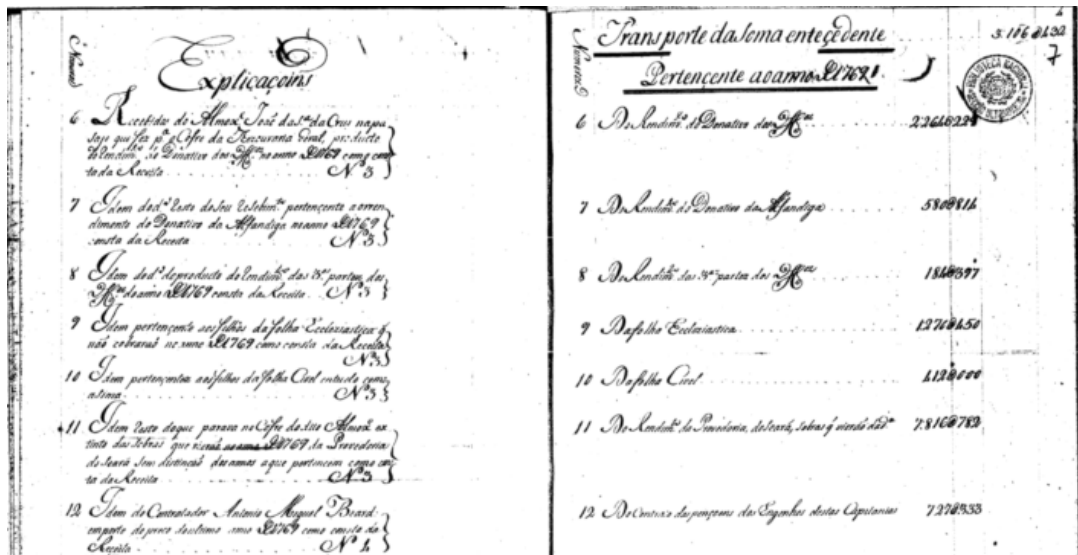 Numeros
Explicaçoins
6 Recebidos do Almox.e João da S.a da Crus napa
saje que fez p.a o Cofre da Thezouraria Geral, producto
do Rendim.to do Donativo dos Off.os no anno D1769 como cons
ta da Receita N.o 3
7 Idem do d.o Resto do seu Recebim.to pertencente ao ren
dimento do Donativo da Alfandiga no anno D1769
consta da Receita N.o 3
8 Idem do d.o do producto do Rendim.to das 3.as partes dos
Off.os do anno D1769 consta da Receita N.o 3
9 Idem pertencente aos filhos da folha Eccleziastica q̃
não cobrarão no anno D1769 como consta da Receita
N.o 3
10 Idem pertencentes aos filhos da folha Civel
asima N.o 3
11 Idem Resto do que parava no Cofre do dito Almox.e ex
tinto das Sobras que D1769 da Provedoria
do Seará sem distinção dos annos a que pertencem como cons
ta da Receita N.o 3
12 Idem do Contratador Antonio Miguel
importe do preço do ultimo anno D1769 como consta da
Receita N.o 4
Numeros
Transporte da soma entecedente 3.106
7
Pertencente ao anno D1769
BIBLIOTECA NACIONAL
6 Do Rendim.to do Donativo dos Off.os
7 Do Rendim.to do Donativo da Alfandiga 580$814
8 Do Rendim.to das 3.as partes dos Off.os
9 Da folha Eccleziastica 1276$450
10 Da folha Civel 412$000
11 Do Rendim.to da Provedoria, do Seará, sobras q̃ vierão 7.816$782
12 Do Contrato das pençoens dos Engenhos destas Capitanias 727$333